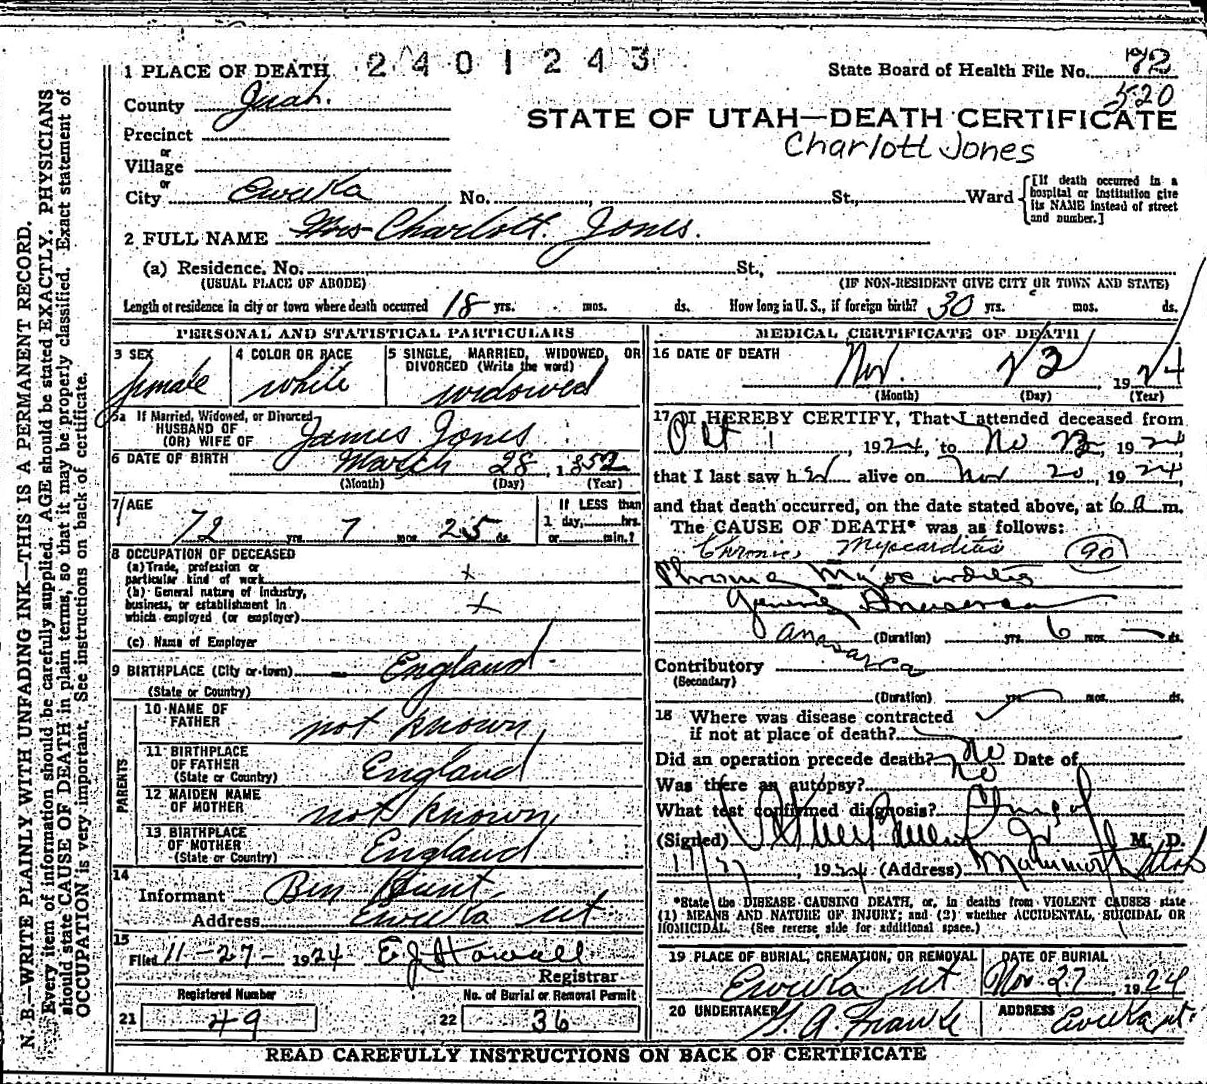 2401243
1 PLACE OF DEATH
State Board of Health File No. 92
520
County Juab.
STATE OF UTAH—DEATH CERTIFICATE
Charlott Jones
Precinct
or
Village
or
City Eureka No. St., Ward
[If death occurred in a hospital or institution give its NAME instead of street and number.]
2 FULL NAME Mrs Charlott. Jones.
(a) Residence. No. St.,
(USUAL PLACE OF ABODE) (IF NON-RESIDENT GIVE CITY OR TOWN AND STATE)
Length of residence in city or town where death occurred 18 yrs. mos. ds. How long in U. S., if foreign birth? 30 yrs. mos. ds.
PERSONAL AND STATISTICAL PARTICULARS
3 SEX female
4 COLOR OR RACE white
5 SINGLE, MARRIED, WIDOWED, OR DIVORCED (Write the word) widowed
5a If Married, Widowed, or Divorced
HUSBAND OF
(OR) WIFE OF James Jones
6 DATE OF BIRTH March 28, 1852
(Month) (Day) (Year)
7 AGE 72 yrs. 7 mos. 25 ds.
If LESS than
1 day, hrs.
or min.?
8 OCCUPATION OF DECEASED
(a) Trade, profession or
particular kind of work x
(b) General nature of industry,
business, or establishment in
which employed (or employer) x
(c) Name of Employer
9 BIRTHPLACE (City or town) England.
(State or Country)
PARENTS
10 NAME OF
FATHER not known
11 BIRTHPLACE
OF FATHER England
(State or Country)
12 MAIDEN NAME
OF MOTHER not known
13 BIRTHPLACE
OF MOTHER England
(State or Country)
14
Informant Ben Hunt
Address Eureka ut
15
Filed 11-27- 1924 E J Howell
Registrar
Registered Number
21 49
No. of Burial or Removal Permit
22 36
MEDICAL CERTIFICATE OF DEATH
16 DATE OF DEATH
Nov. 23, 1924
(Month) (Day) (Year)
17 I HEREBY CERTIFY, That I attended deceased from
Oct 1, 1924, to No 23, 1924
that I last saw her alive on Nov 20, 1924
and that death occurred, on the date stated above, at 6 a m.
The CAUSE OF DEATH* was as follows:
Chronic Myocarditis 90
Chronic Myocarditis
General Anasarca
Anasarca
(Duration) yrs. 6 mos. — ds.
Contributory
(Secondary)
(Duration) yrs. mos. ds.
18 Where was disease contracted
if not at place of death?
Did an operation precede death? No Date of
Was there an autopsy? no
What test confirmed diagnosis? Clinical
(Signed) M. D.
11/27, 1924 (Address) Mammoth Utah
*State the DISEASE CAUSING DEATH, or, in deaths from VIOLENT CAUSES state
(1) MEANS AND NATURE OF INJURY; and (2) whether ACCIDENTAL, SUICIDAL OR
HOMICIDAL. (See reverse side for additional space.)
19 PLACE OF BURIAL, CREMATION, OR REMOVAL
Eureka ut
DATE OF BURIAL
Nov. 27, 1924
20 UNDERTAKER
ADDRESS
Eureka ut
READ CAREFULLY INSTRUCTIONS ON BACK OF CERTIFICATE
N. B.—WRITE PLAINLY WITH UNFADING INK—THIS IS A PERMANENT RECORD.
Every item of information should be carefully supplied. AGE should be stated EXACTLY. PHYSICIANS
should state CAUSE OF DEATH in plain terms, so that it may be properly classified. Exact statement of
OCCUPATION is very important. See instructions on back of certificate.